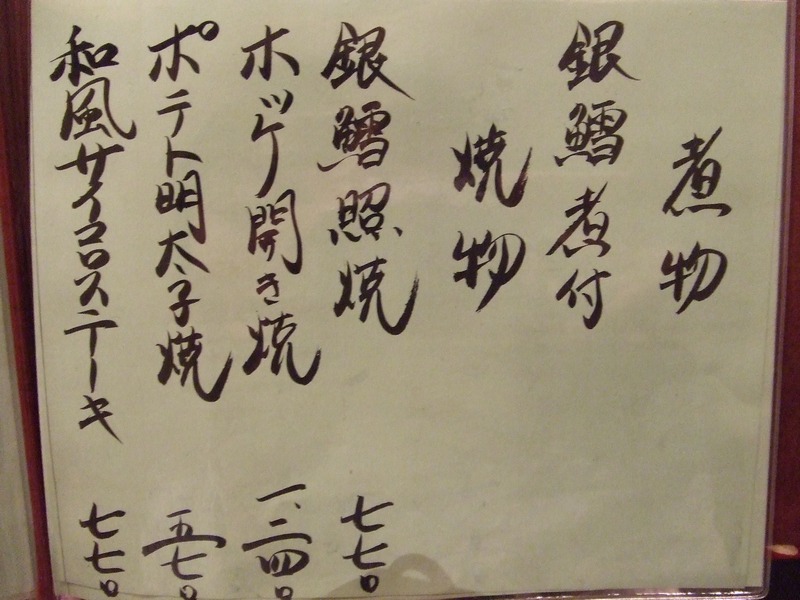 煮物
銀鱈煮付
焼物
銀鱈照焼 七七〇
ホッケ開き焼 一、二四〇
ポテト明太子焼 五七〇
和風サイコロステーキ 七七〇